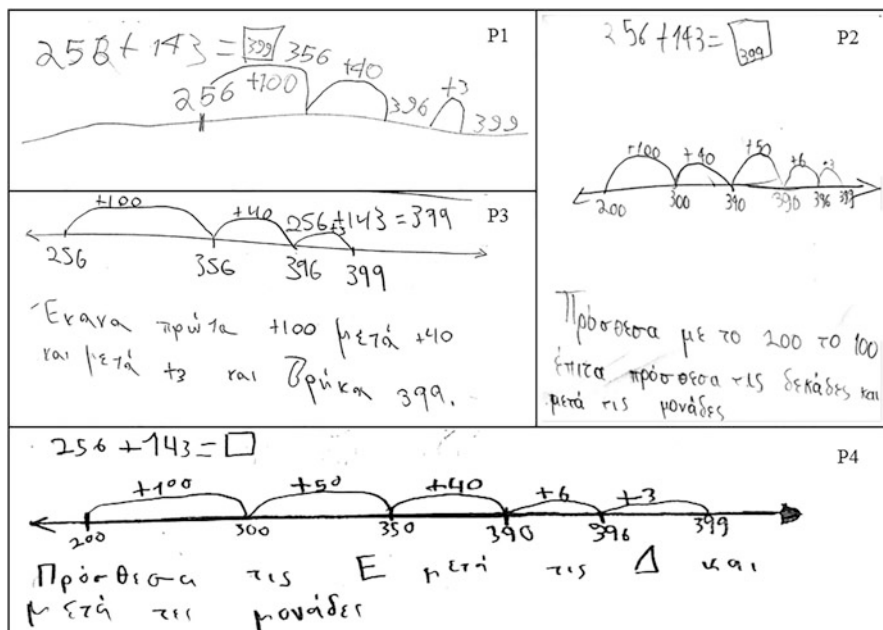 P1
256+143=399
356
+100
+40
+3
256
396
399
P2
256+143=399
+100 +40 +50 +6 +3
200 300 390 390 396 399
Πρόσθεσα με το 200 το 100
έπιτα πρόσθεσα τις δεκάδες και
μετά τις μονάδες
P3
+100 +40 +3
256+143=399
256 356 396 399
Έκανα πρώτα +100 μετά +40
και μετά +3 και βρήκα 399.
P4
256+143=□
+100 +50 +40 +6 +3
200 300 350 390 396 399
Πρόσθεσα τις Ε μετά τις Δ και
μετά τις μονάδες